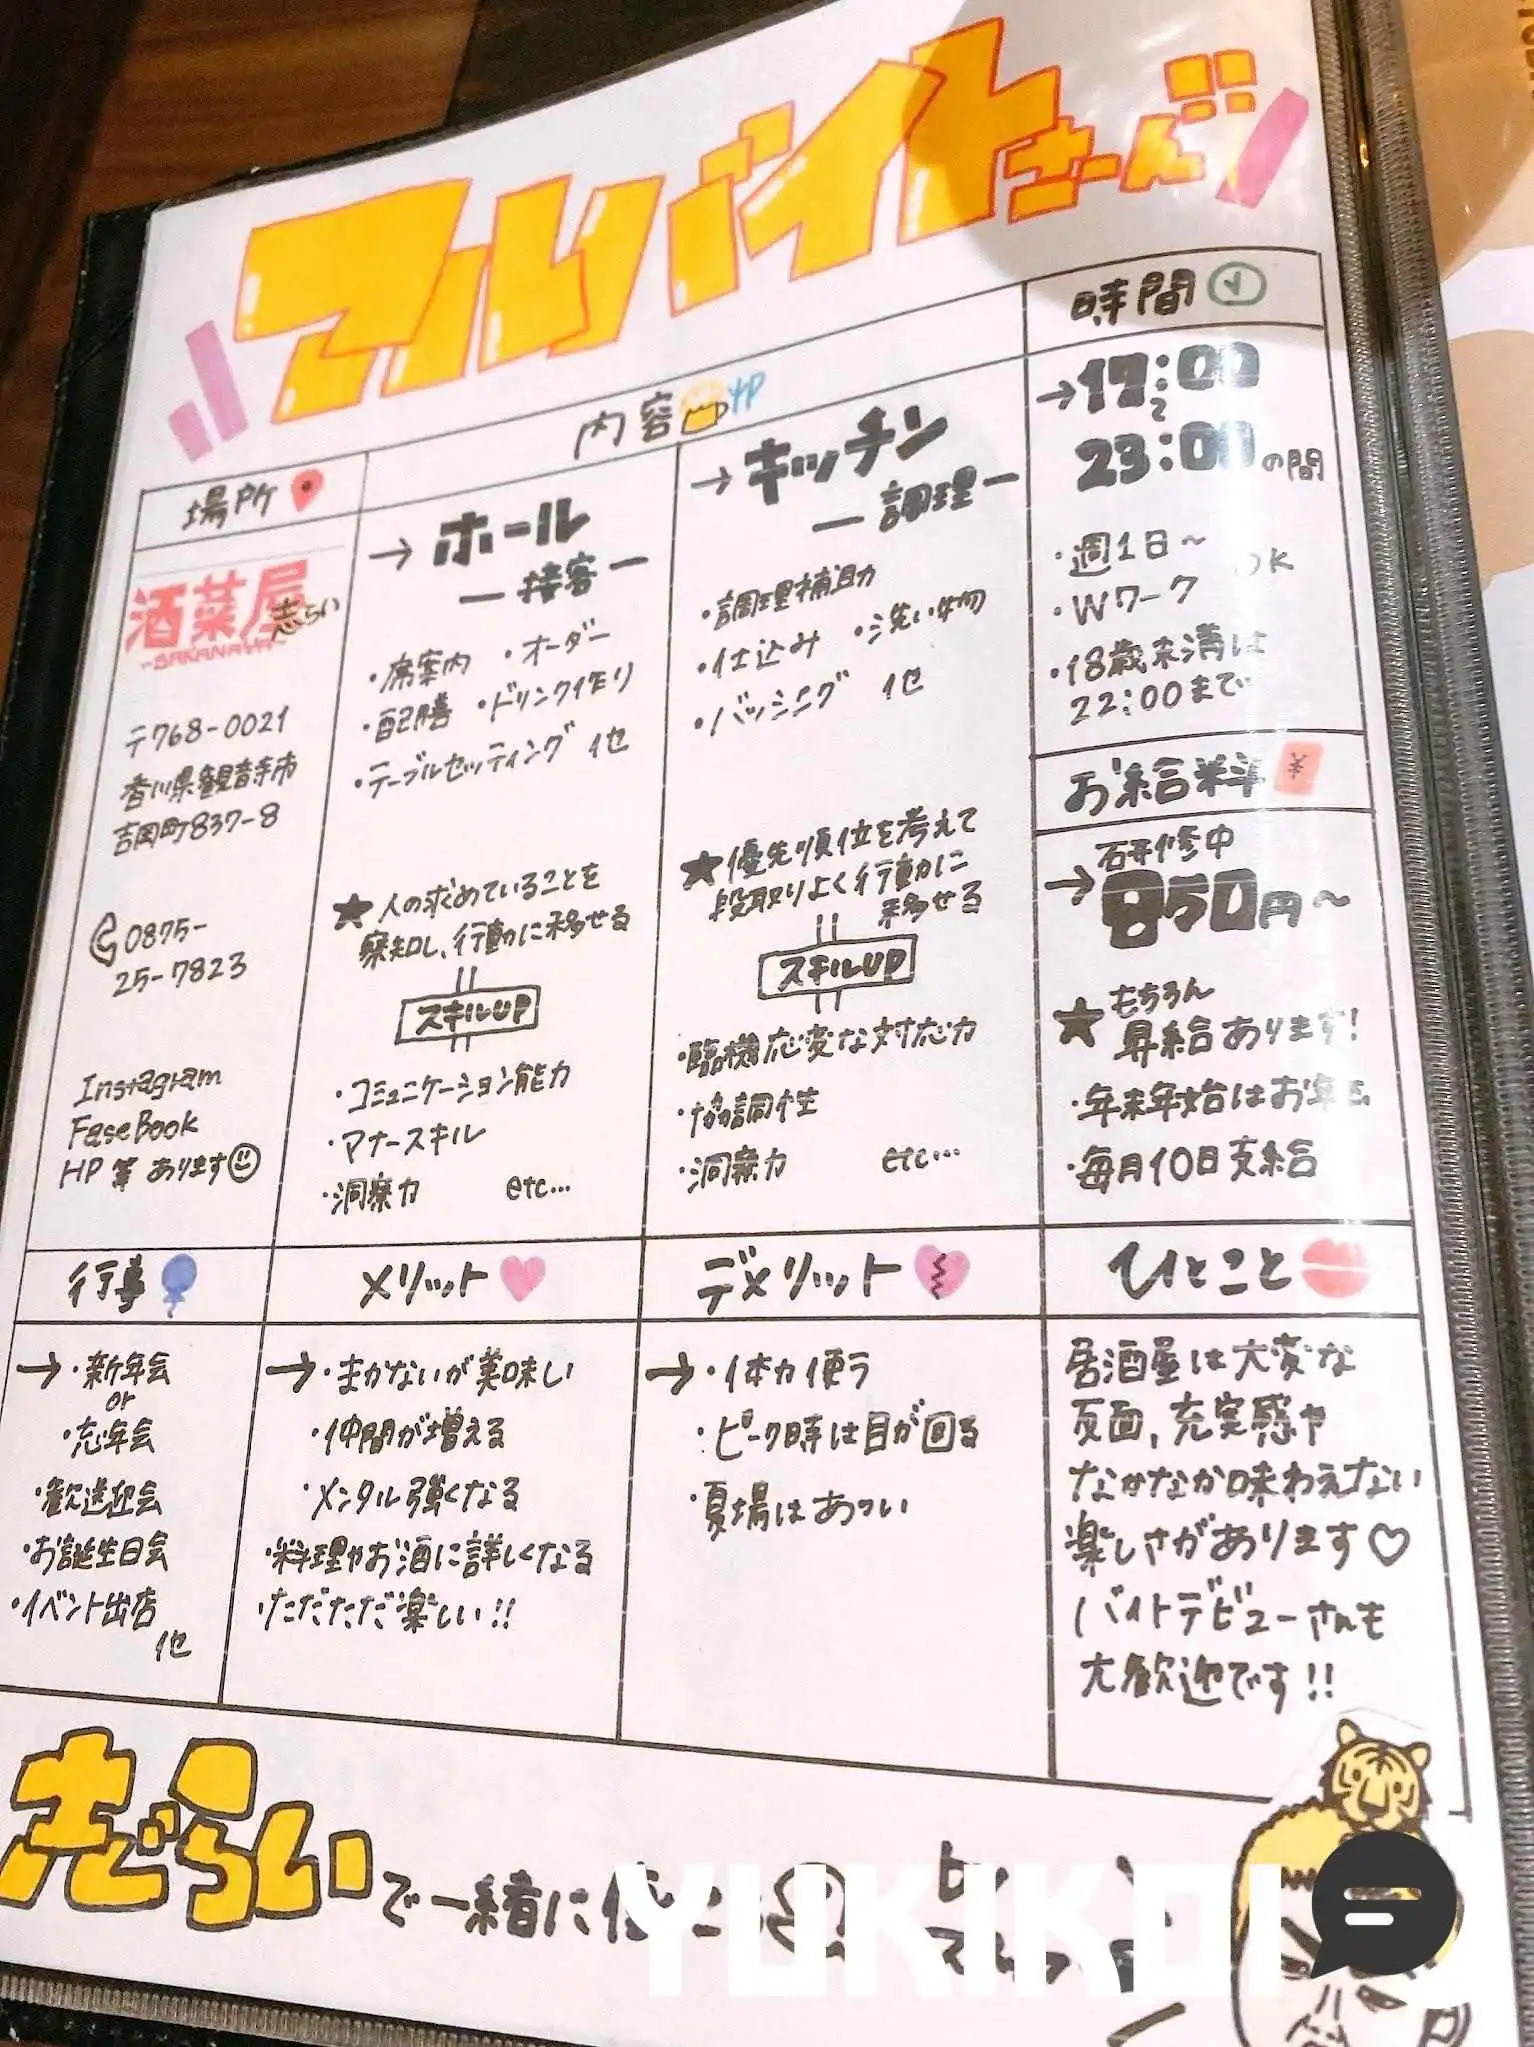 アルバイトさーん!!
場所
酒菜屋
志らい
~SAKANAYA~
〒768-0021
香川県観音寺市
吉岡町837-8
0875-
25-7823
Instagram
FaseBook
HP 等 あります
内容
→ホール
ー接客ー
・席案内 ・オーダー
・配膳 ・ドリンク作り
・テーブルセッティング 他
★人の求めていることを
察知し、行動に移せる
スキルUP
・コミュニケーション能力
・マナースキル
・洞察力 etc…
→キッチン
ー調理ー
・調理補助
・仕込み ・洗い物
・バッシング 他
★優先順位を考えて
段取りよく行動に
移せる
スキルUP
・臨機応変な対応力
・協調性
・洞察力 etc…
時間
→17:00
~
23:00の間
・週1日~
・Wワーク OK
・18歳未満は
22:00まで
お給料 ¥
研修中
→850円~
★もちろん
昇給あります!
・年末年始はお年玉
・毎月10日支給
行事
→・新年会
or
・忘年会
・歓送迎会
・お誕生日会
・イベント出店
他
メリット
→・まかないが美味しい
・仲間が増える
・メンタル強くなる
・料理やお酒に詳しくなる
・ただただ楽しい!!
デメリット
→・体力使う
・ピーク時は目が回る
・夏場はあつい
ひとこと
居酒屋は大変な
反面,充実感や
なかなか味わえない
楽しさがあります♡
バイトデビューさんも
大歓迎です!!
志らい で一緒に
YUKIKOI